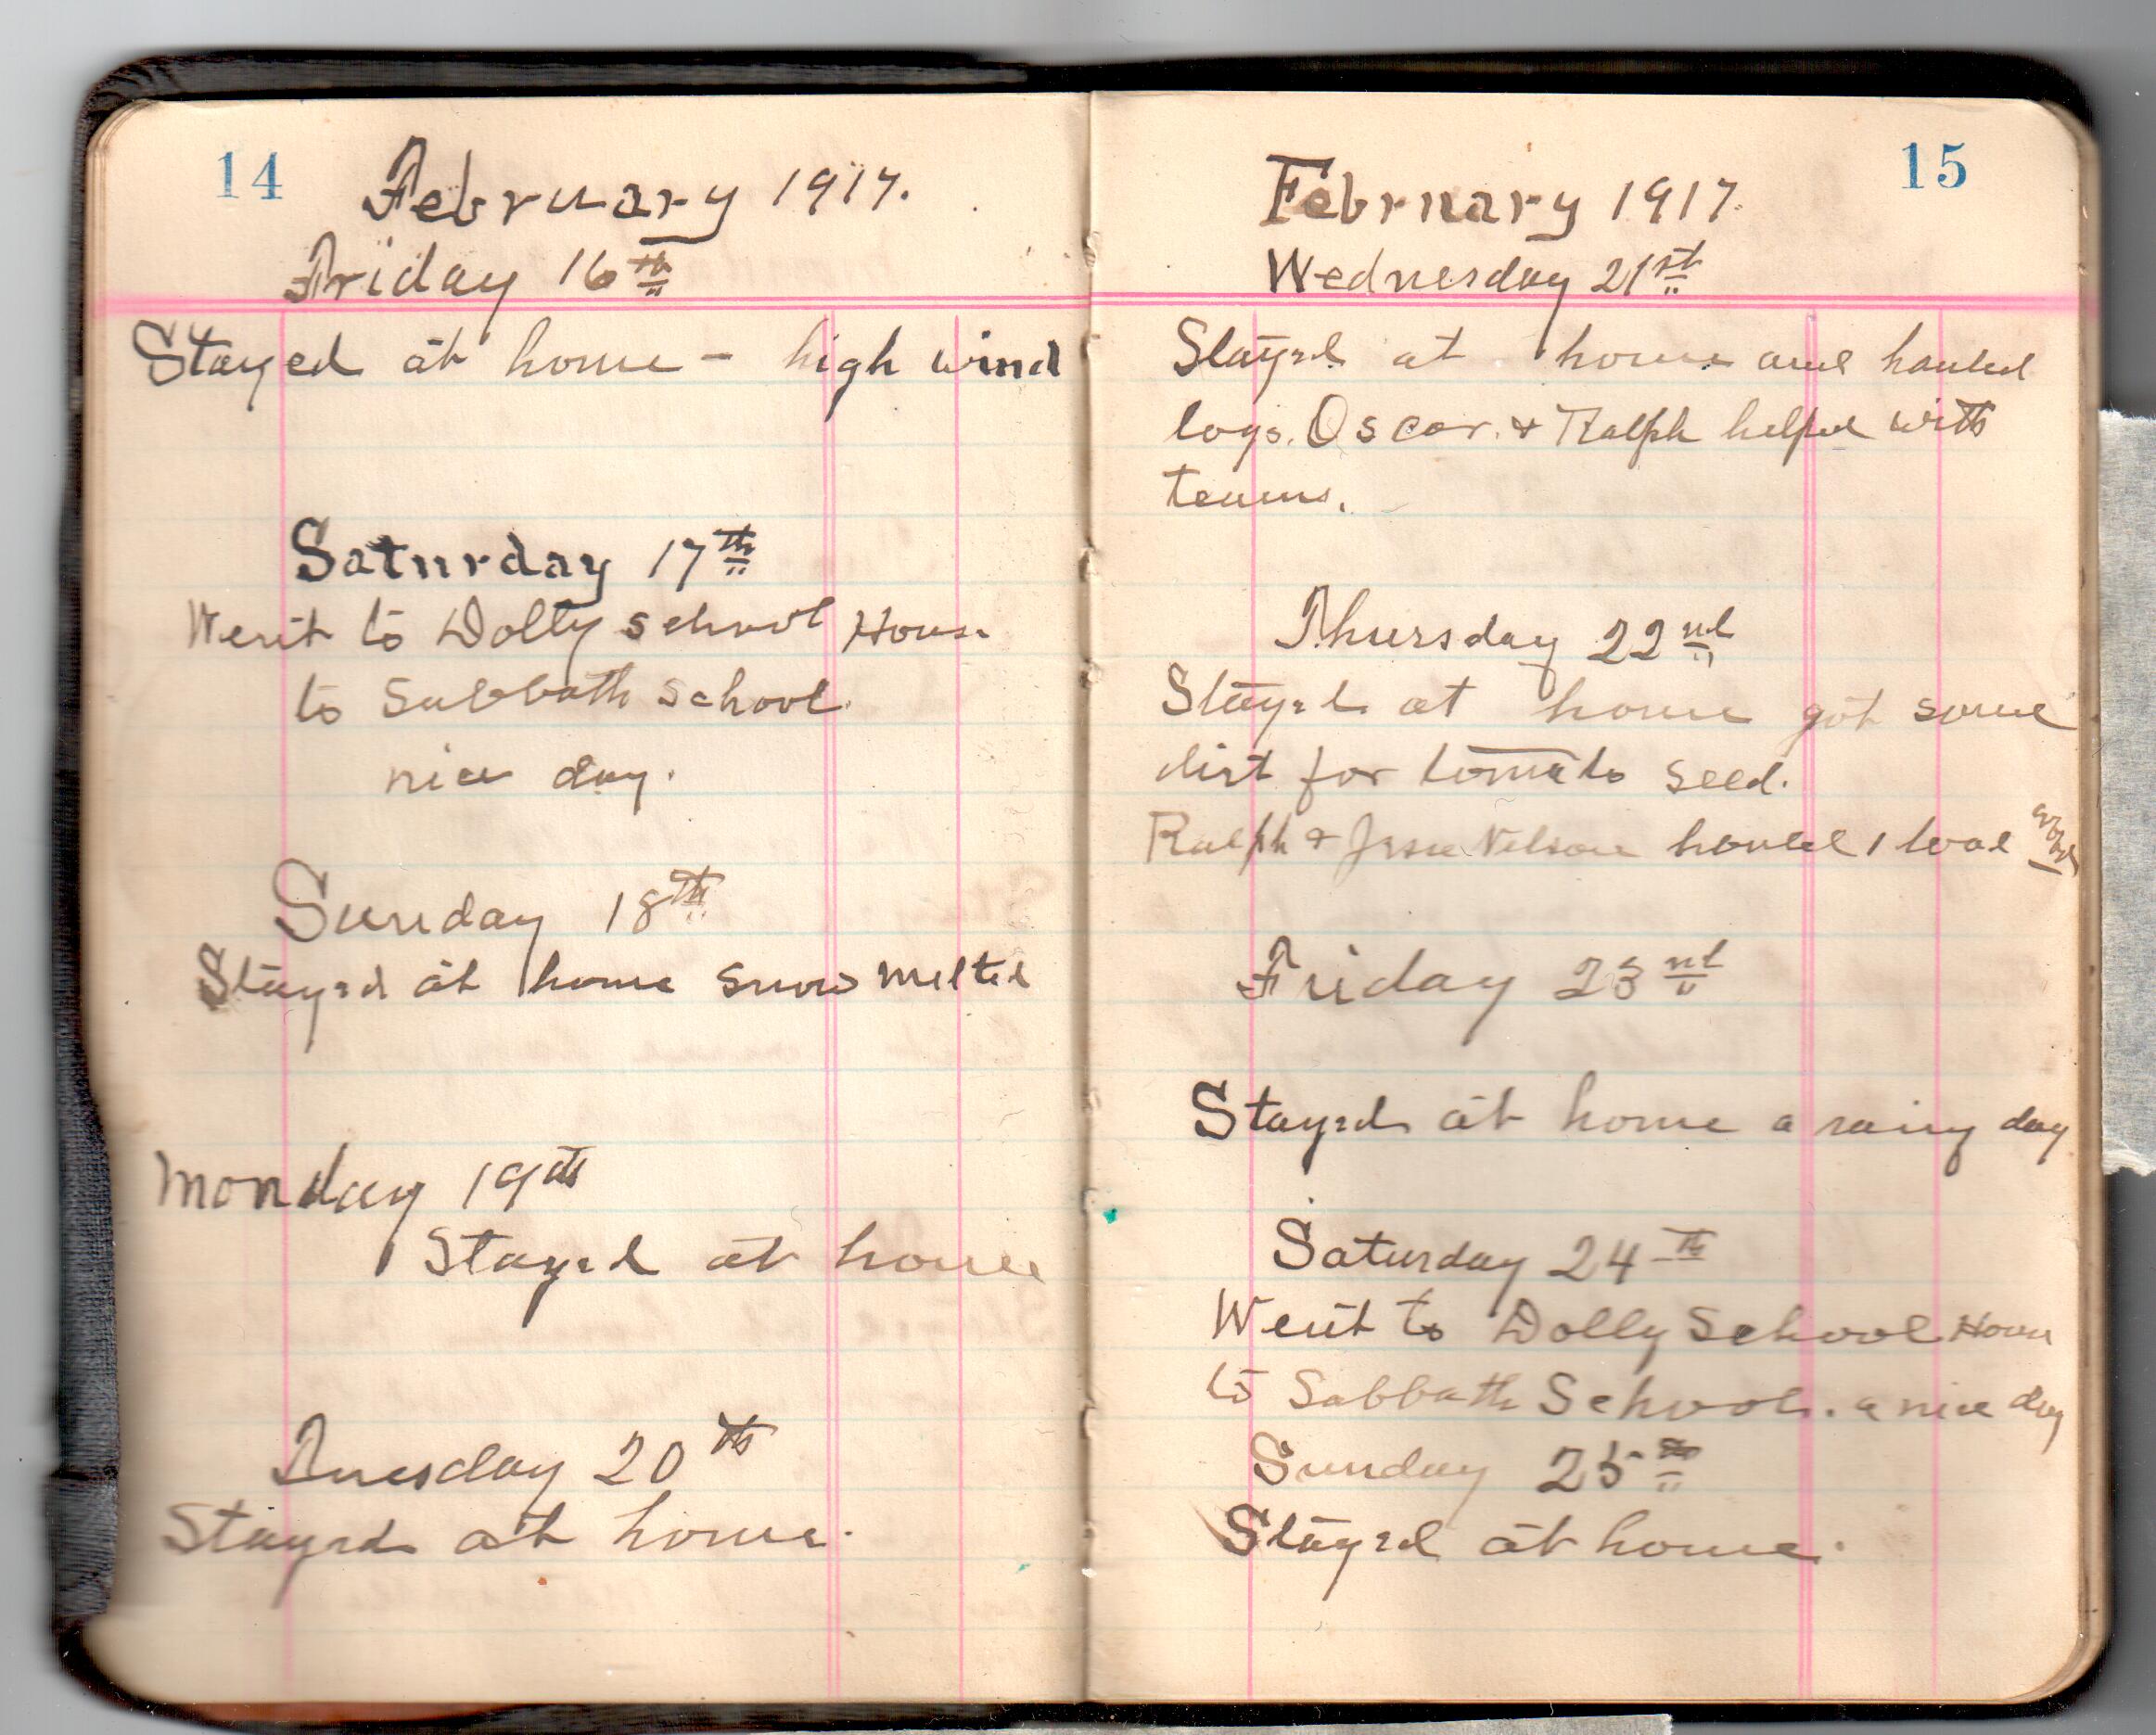 14
February 1917.
Friday 16th
Stayed at home - high wind
Saturday 17th
Went to Dolly School House
to Sabbath School.
nice day.
Sunday 18th
Stayed at home snow melted
Monday 19th
Stayed at home
Tuesday 20th
Stayed at home.
15
February 1917.
Wednesday 21st
Stayed at home and hauled
logs. Oscar & Ralph helped with
teams.
Thursday 22nd
Stayed at home got some
dirt for tomato seed.
Ralph & Nelson hauled 1 load wood
Friday 23rd
Stayed at home a rainy day
Saturday 24th
Went to Dolly School House
to Sabbath School. a nice day
Sunday 25th
Stayed at home.